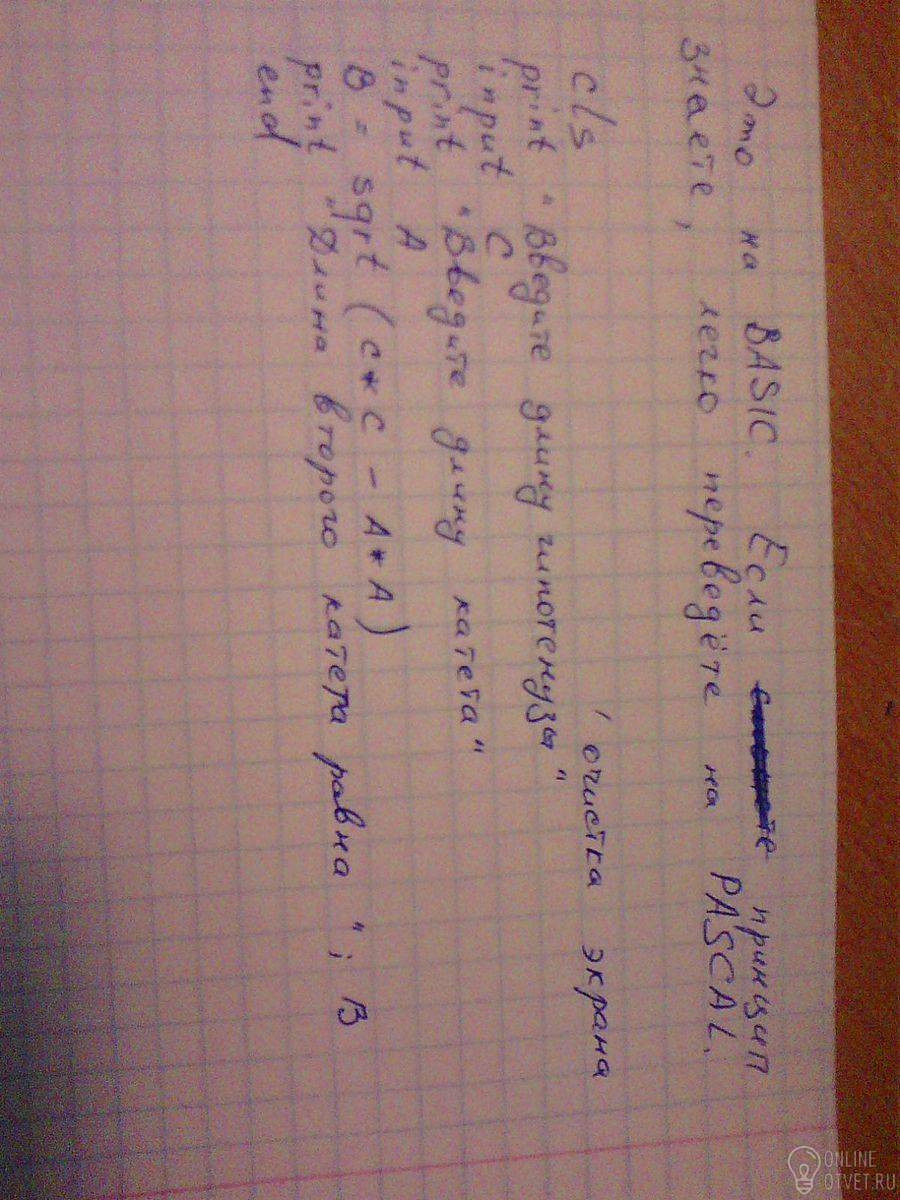 Это на BASIC. Если принцип
знаете, легко переведёте на PASCAL.
cls ' очистка экрана
print "Введите длину гипотенузы"
input C
print "Введите длину катета"
input A
B = sqrt (C*C - A*A)
print "Длина второго катера равна "; B
end
ONLINE
OTVET.RU